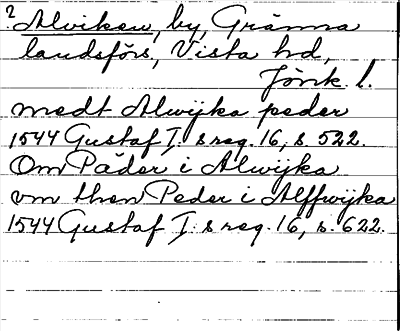 ? Alviken, by, Gränna
landsförs, Vista hd,
Jönk. l.
medt Alwijka peder
1544 Gustaf I:s reg. 16, s. 522.
Om Päder i Alwijka
vm then Peder i Alffwijka
1544 Gustaf I:s reg. 16, s. 622.